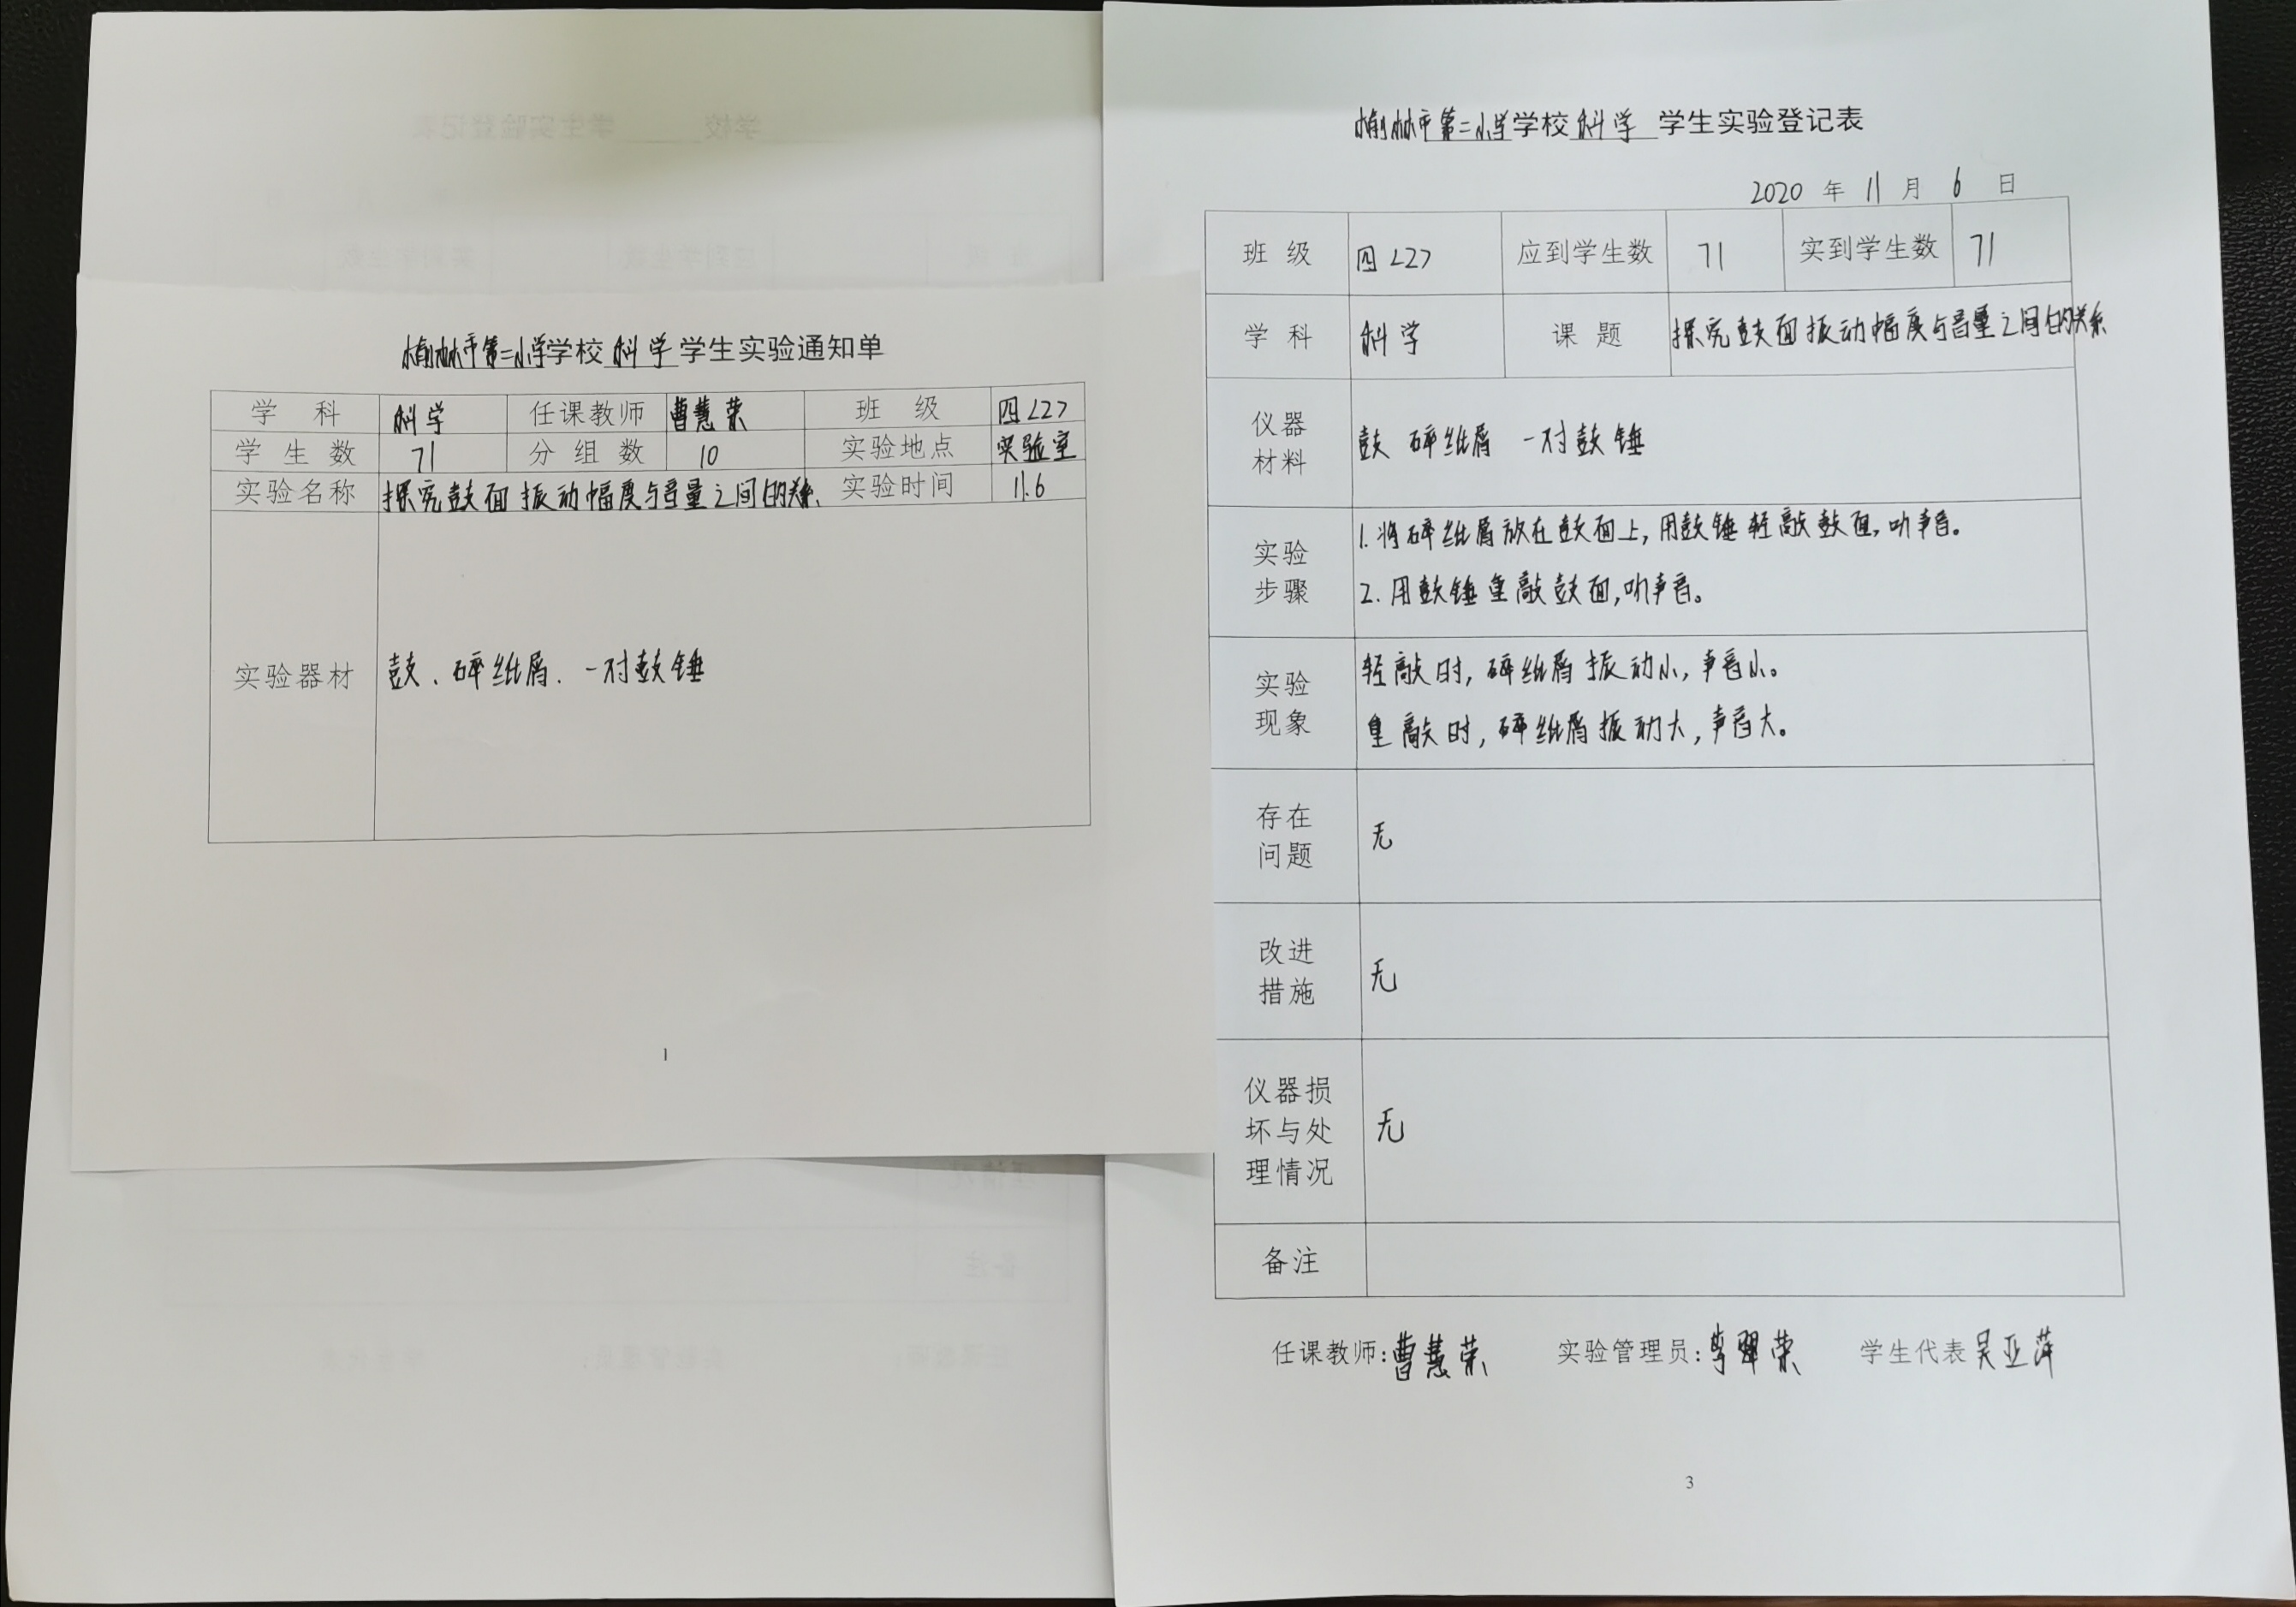 榆林市第二小学学校 科学 学生实验通知单
学 科 科学 任课教师 曹慧荣 班 级 四<2>
学 生 数 71 分 组 数 10 实验地点 实验室
实验名称 探究鼓面振动幅度与音量之间的关系 实验时间 11.6
实验器材 鼓、碎纸屑、一对鼓锤
1
榆林市第二小学学校 科学 学生实验登记表
2020 年 11 月 6 日
班 级 四<2> 应到学生数 71 实到学生数 71
学 科 科学 课 题 探究鼓面振动幅度与音量之间的关系
仪器
材料
鼓 碎纸屑 一对鼓锤
实验
步骤
1. 将碎纸屑放在鼓面上,用鼓锤轻敲鼓面,听声音。
2. 用鼓锤重敲鼓面,听声音。
实验
现象
轻敲时,碎纸屑振动小,声音小。
重敲时,碎纸屑振动大,声音大。
存在
问题
无
改进
措施
无
仪器损
坏与处
理情况
无
备注
任课教师:曹慧荣 实验管理员:李翠荣 学生代表 吴亚萍
3